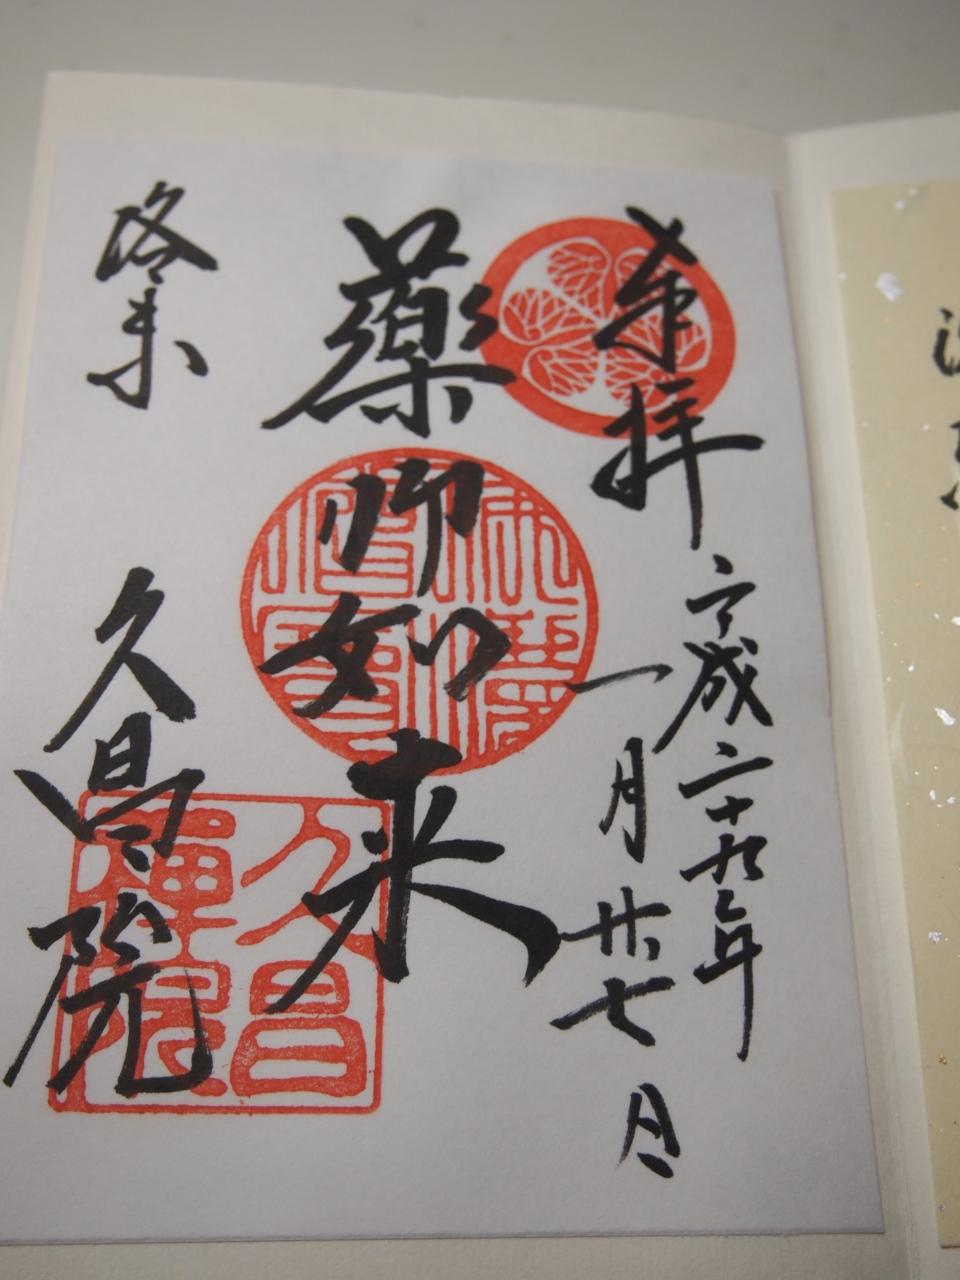 奉拝
平成二十九年
一月廿七日
薬师如来
洛東
久昌院
久昌禅院